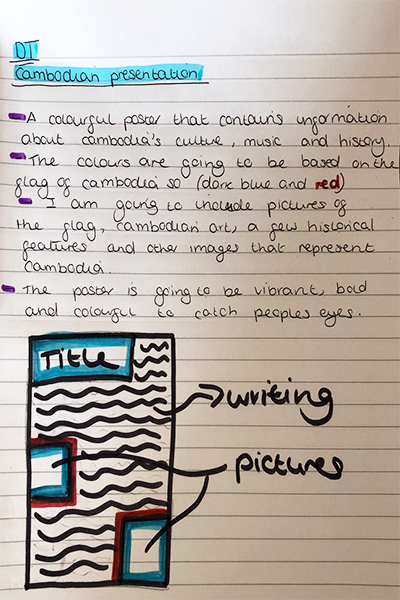 DT
Cambodian presentation
A colourful poster that contains information
about cambodia's culture, music and history.
The colours are going to be based on the
flag of cambodia so (dark blue and red)
I am going to include pictures of
the flag, cambodian art, a few historical
features and other images that represent
cambodia.
The poster is going to be vibrant, bold
and colourful to catch peoples eyes.
Title
writing
pictures